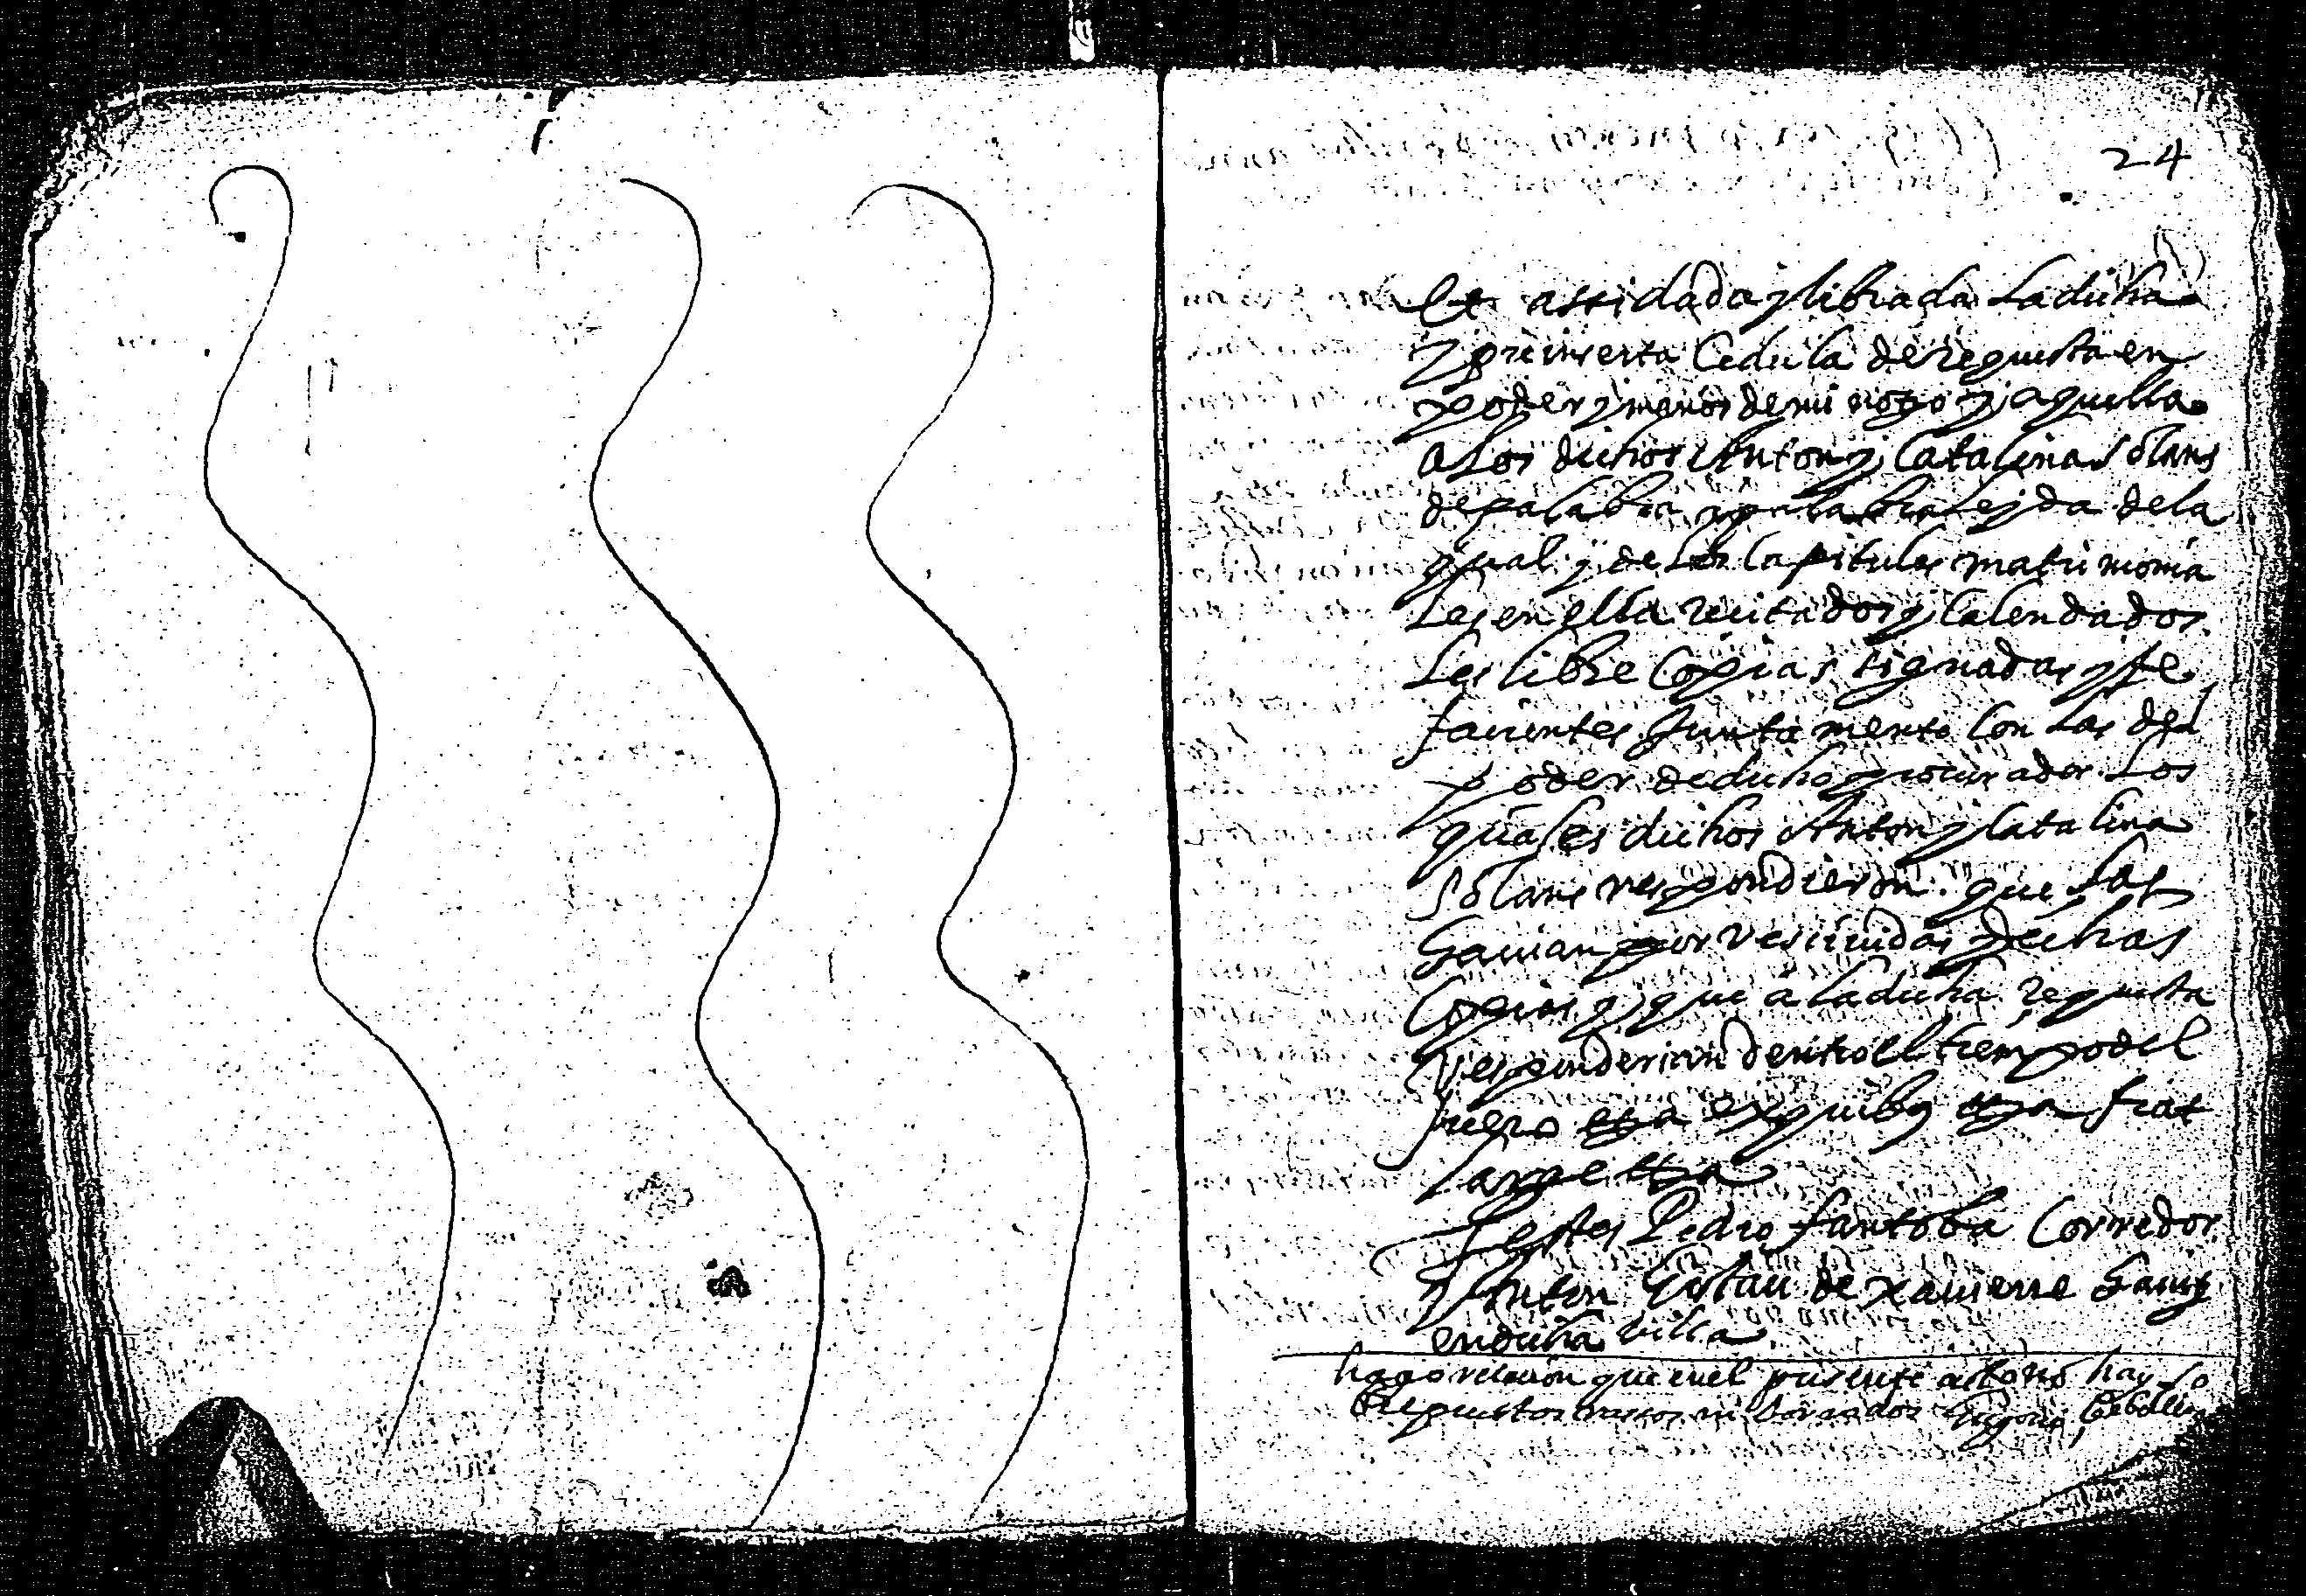 24
Et assi dada y librada la dicha
y preinserta Cedula de requesta en
poder y manos de mi nota.o y aquella
a los dichos Anton y Catalina Solans
de palabra a palabra leyda de la
qual y de los Capitulos matrimonia
les en ella recitados y Calendados
les libre Copias signadas y fe
facientes Juntamente Con las del
poder de dicho procurador Los
quales dichos Anton y Catalina
Solans respondieron que las
hauian por reciuidas dichas
Copias y que a la dicha requesta
responderian dentro el tiempo del
fuero etta ex quibus etta fiat
large etta
Testes Pedro fantoba Corredor
y Anton Gistau de xauierre hauit.
en dicha villa
hago relacion que en el presente acto no hay so
brepuestos rassos ni borrados